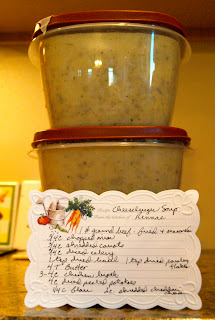 Recipe: Cheeseburger Soup
Rennae
1# ground beef - fried &
3/4c chopped onion
3/4c shredded carrots
3/4c diced celery
1 tsp dried basil 1 tsp dried parsley flakes
4T Butter
3-4c chicken broth
4c diced peeled potatoes
1/4c flour 2c shredded cheddar